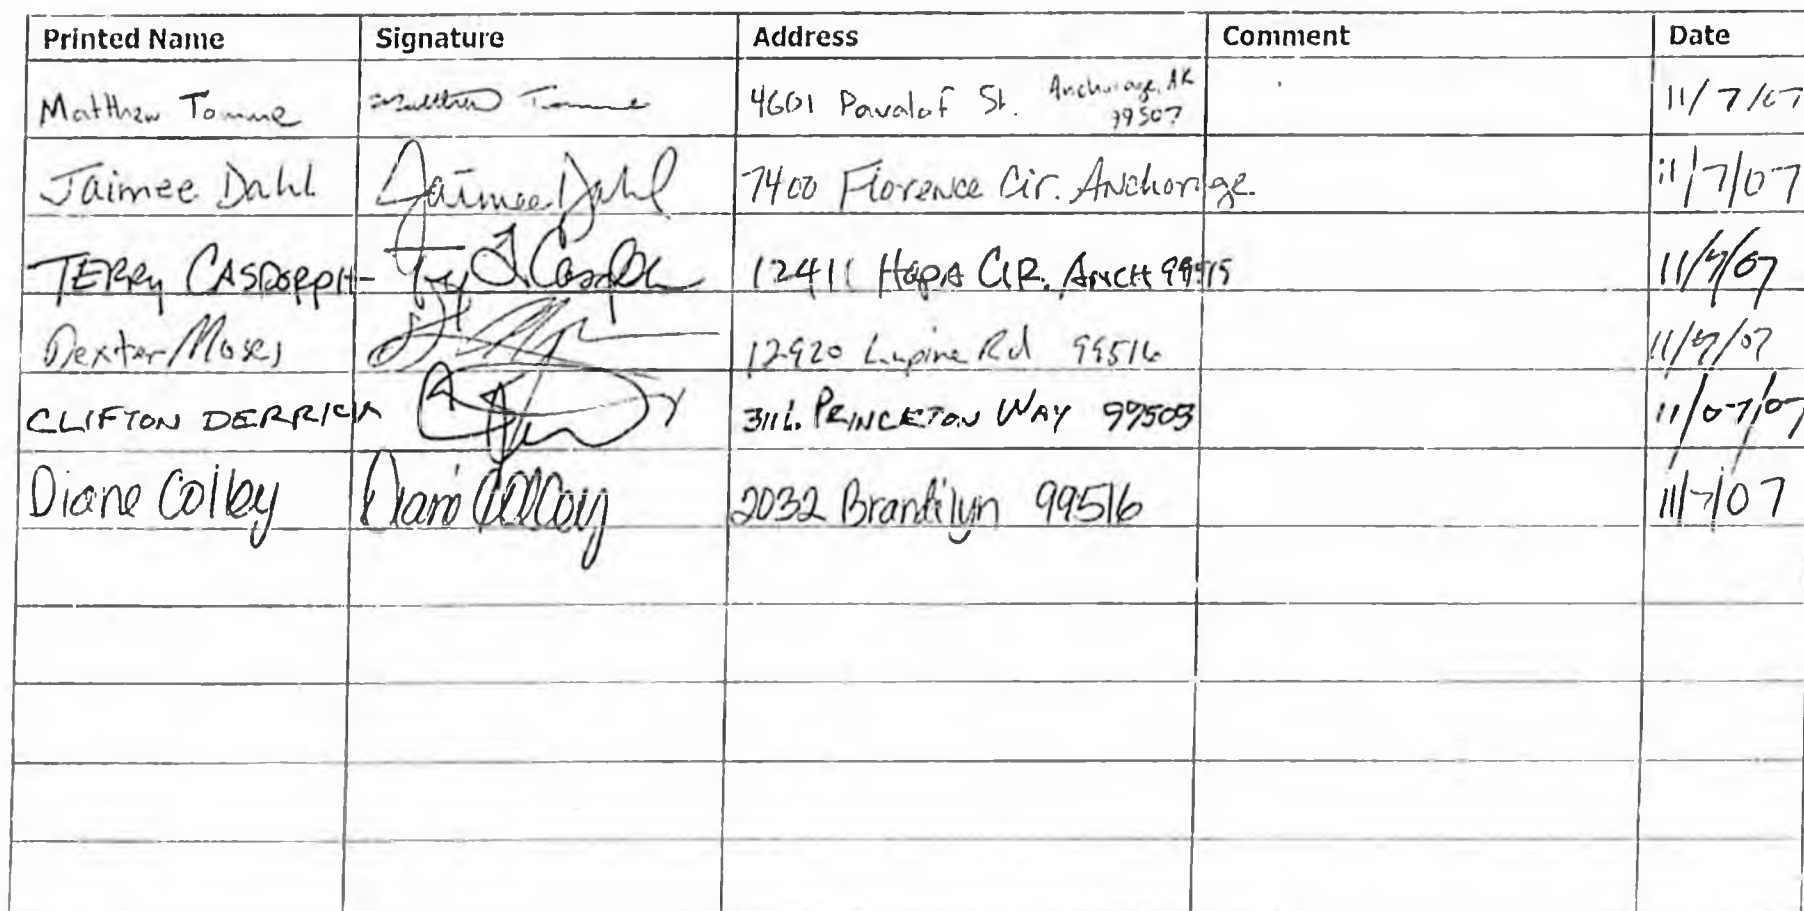 Printed Name Signature Address Comment Date
Matthew Tomme Matthew Tomme 4601 Pavalof St. Anchorage, AK 99507 11/7/07
Jaimee Dahl Jaimee Dahl 7400 Florence Cir. Anchorage 11/7/07
TERRY CASDORPH 12411 CIR. ANCH 99515 11/7/07
Dexter Moses 12920 Lupine Rd 99516 11/7/07
CLIFTON DERRICK PRINCETON WAY 99503 11/07/07
Diane Colley 2032 Brandilyn 99516 11/7/07